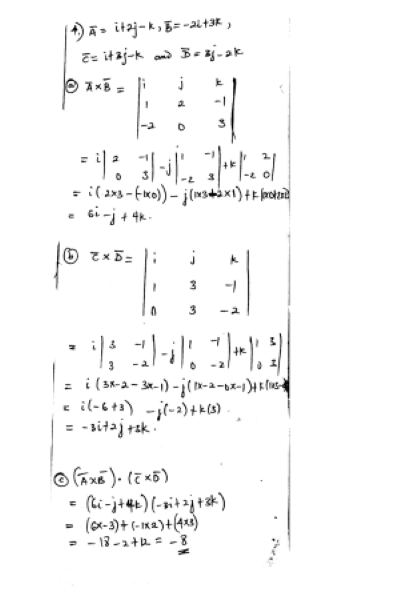 4.) A̅ = i+2j-k, B̅ = -2i+3k,
C̅ = i+3j-k and D̅ = 3j-2k
(a) A̅×B̅ = | i j k |
| 1 2 -1 |
| -2 0 3 |
= i | 2 -1 | -j | 1 -1 | +k | 1 2 |
| 0 3 | | -2 3 | | -2 0 |
= i(2×3-(-1×0)) - j(1×3-2×1)+k
= 6i-j+4k.
(b) C̅×D̅ = | i j k |
| 1 3 -1 |
| 0 3 -2 |
= i | 3 -1 | -j | 1 -1 | +k | 1 3 |
| 3 -2 | | 0 -2 | | 0 3 |
= i(3×-2-3×-1)-j(1×-2-0×-1)+k(1×3-
= i(-6+3) -j(-2)+k(3).
= -3i+2j+3k.
(c) (A̅×B̅)·(C̅×D̅)
= (6i-j+4k)(-3i+2j+3k)
= (6×-3)+(-1×2)+(4×3)
= -18-2+12 = -8